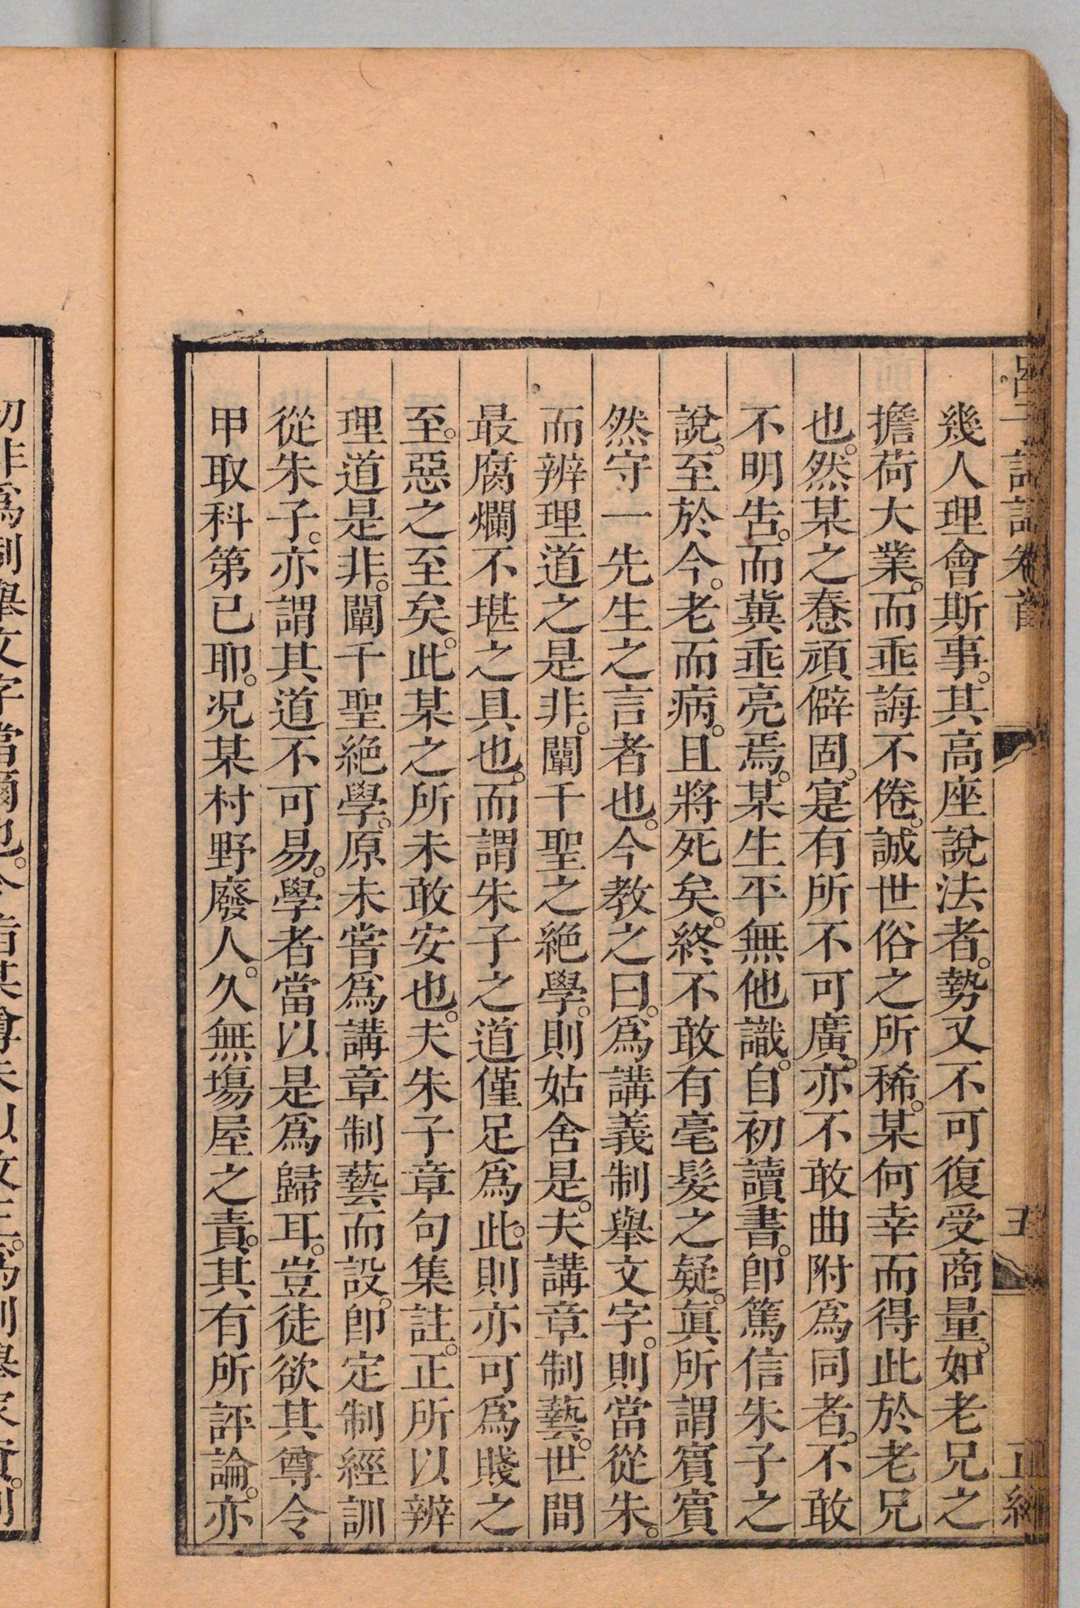 幾人理會斯事。其高座說法者。勢又不可復受商量。如老兄之
擔荷大業。而乖誨不倦。誠世俗之所稀。某何幸而得此於老兄
也。然某之惷頑僻固。寔有所不可廣。亦不敢曲附爲同者。不敢
不明告。而冀垂亮焉。某生平無他識。自初讀書。卽篤信朱子之
說。至於今。老而病。且將死矣。終不敢有毫髮之疑。眞所謂賓賓
然守一先生之言者也。今教之曰。爲講義制舉文字。則當從朱。
而辨理道之是非。闡千聖之絕學。則姑舍是。夫講章制藝。世間
最腐爛不堪之具也。而謂朱子之道僅足爲此。則亦可爲賤之
至。惡之至矣。此某之所未敢安也。夫朱子章句集註。正所以辨
理道是非。闡千聖絕學。原未嘗爲講章制藝而設。卽定制經訓
從朱子。亦謂其道不可易。學者當以是爲歸耳。豈徒欲其尊令
甲取科第已耶。况某村野廢人。久無塲屋之責。其有所評論。亦